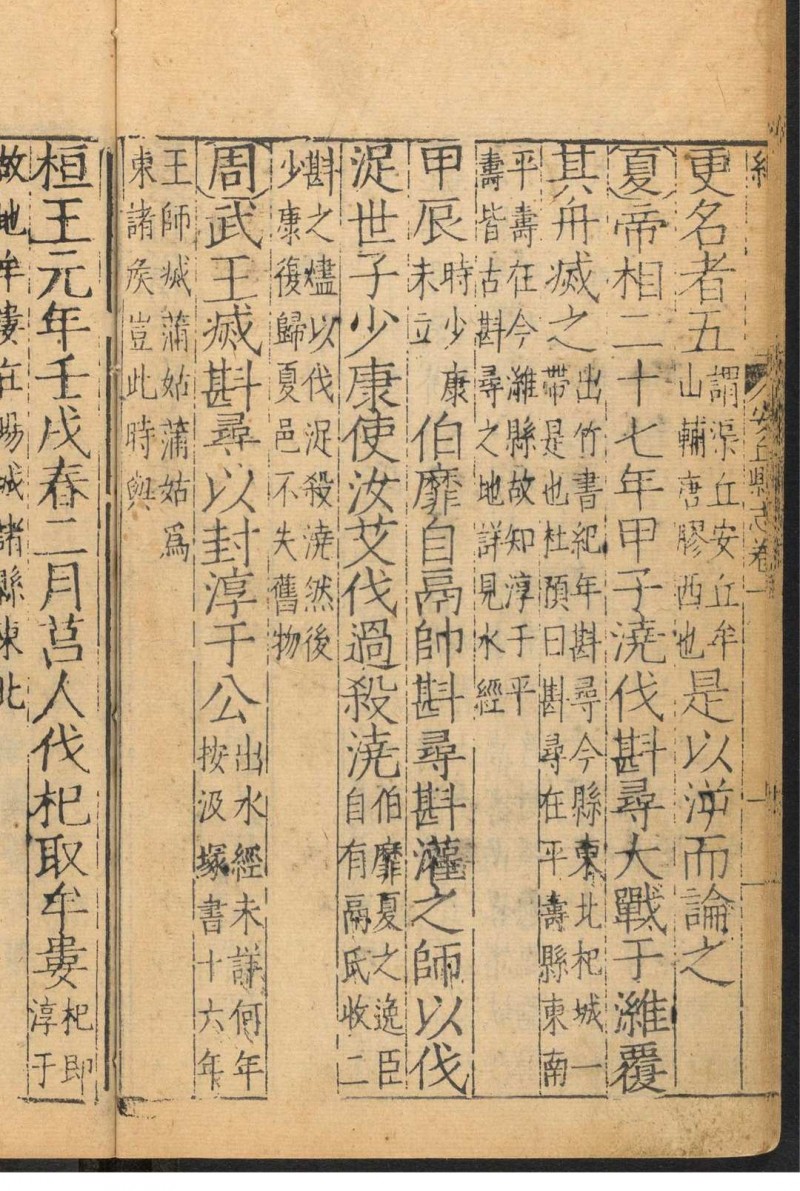 安丘縣志卷一
更名者五謂渠丘安丘牟山輔唐膠西也是以逆而論之
夏帝相二十七年甲子澆伐斟尋大戰于濰覆
其舟滅之出竹書紀年斟尋今縣東北杞城一帶是也杜預曰斟尋在平壽縣東南
平壽在今濰縣故知淳于平壽皆古斟尋之地詳見水經
甲辰時少康未立伯靡自鬲帥斟尋斟灌之師以伐
浞世子少康使汝艾伐過殺澆伯靡夏之逸臣自有鬲氏收二
斟之燼以伐浞殺澆然後少康復歸夏邑不失舊物
周武王滅斟尋以封淳于公出水經未詳何年按汲塚書十六年
王師滅蒲姑蒲姑為東諸矦豈此時與
桓王元年壬戌春二月莒人伐杞取牟婁杞即淳于
故地牟婁在
城諸縣東北